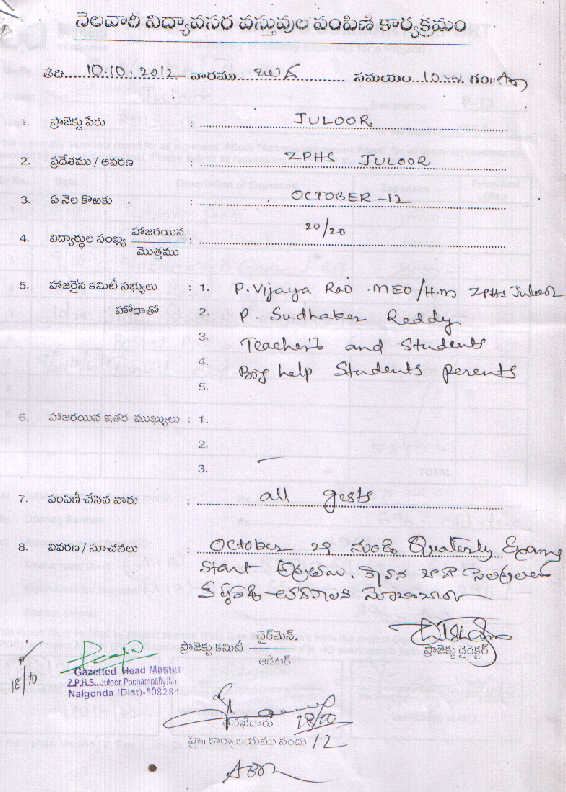 నెలవారీ విద్యావసర వస్తువుల పంపిణి కార్యక్రమం
తేది. 10.10.2012 వారము బుధ సమయం
1. ప్రాజెక్టు పేరు : JULOOR
2. ప్రదేశము / ఆవరణ : ZPHS JULOOR
3. ఏ నెల కొఱకు : OCTOBER-12
4. విద్యార్థుల సంఖ్య హాజరయిన : 20/20
మొత్తము
5. హాజరైన కమిటీ సభ్యులు : 1. P. Vijaya Rao. MEO/H.M ZPHS Juloor
హోదాతో 2. P. Sudhaker Reddy
3. Teacher's and Students
4. help Students perents
5.
6. హాజరయిన ఇతర ముఖ్యులు : 1.
2.
3. -
7. పంపిణీ చేసిన వారు : all gests
8. వివరణ / సూచనలు : October 29 నుండి Quaterly Exams
start
ప్రాజెక్టు కమిటీ చైర్‌మెన్.
ఆడిటర్
ప్రాజెక్టు డైరెక్టర్
18/10
Gazetted Head Master
Z.P.H.S. Juloor Pochampally
Nalgonda (Dist)-508284
18/10
12